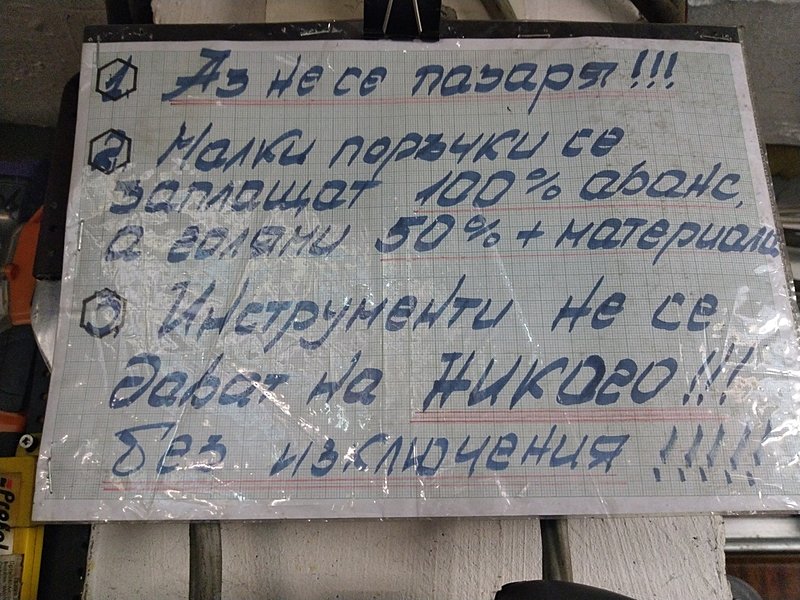 1 Аз не се пазаря!!!
2 Малки поръчки се
заплащат 100% аванс,
а голями 50% + материала
3 Инструменти не се
дават на НИКОГО!!!
без изключения !!!!!